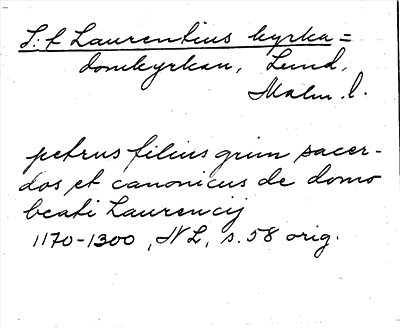 S:t Laurentius kyrka =
domkyrkan, Lund,
Malm. l.
petrus filius grim sacer-
dos et canonicus de domo
beati Laurencij
1170-1300, NL, s. 58 orig.